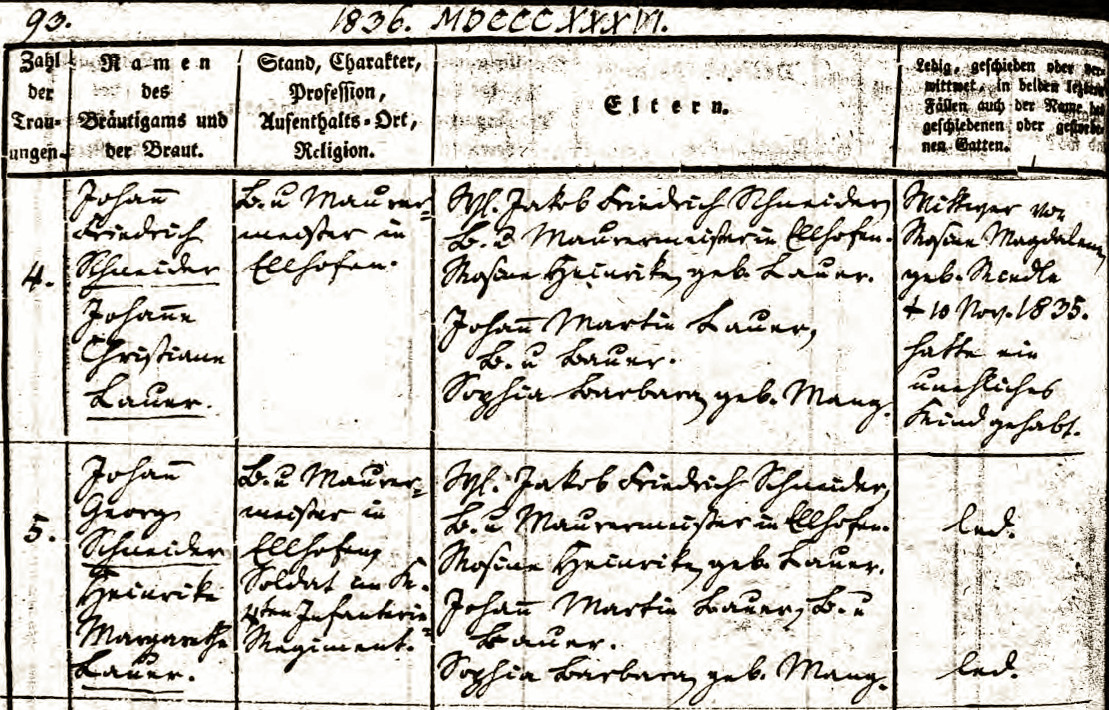 93.
1836. MDCCCXXXVI.
Zahl
der
Trau-
ungen.
Namen
des
Bräutigams und
der Braut.
Stand, Charakter,
Profession,
Aufenthalts-Ort,
Religion.
Eltern.
Ledig, geschieden oder ver-
wittwet, in beiden letztern
Fällen auch der Name des
geschiedenen oder gestorbe-
nen Gatten.
4.
Johann
Friedrich
Schneider
Johanne
Christiane
Lauer.
B. u Maurer=
meister in
Ellhofen.
Jakob Friedrich Schneider,
B. u Maurermeister in Ellhofen.
Rosine Heinrike, geb. Lauer.
Johann Martin Lauer,
B. u Bauer.
Sophia Barbara, geb. Mang.
Wittwer von
Rosine Magdalena,
geb.
† 10 Nov. 1835.
hatte ein
unehliches
Kind gehabt.
5.
Johann
Georg
Schneider
Heinrike
Margarethe
Lauer.
B. u Maurer=
meister in
Ellhofen,
Soldat im
4ten Infanterie=
Regiment.
Jakob Friedrich Schneider,
B. u Maurermeister in Ellhofen.
Rosine Heinrike, geb. Lauer.
Johann Martin Lauer, B. u
Bauer.
Sophia Barbara, geb. Mang.
led.
led.